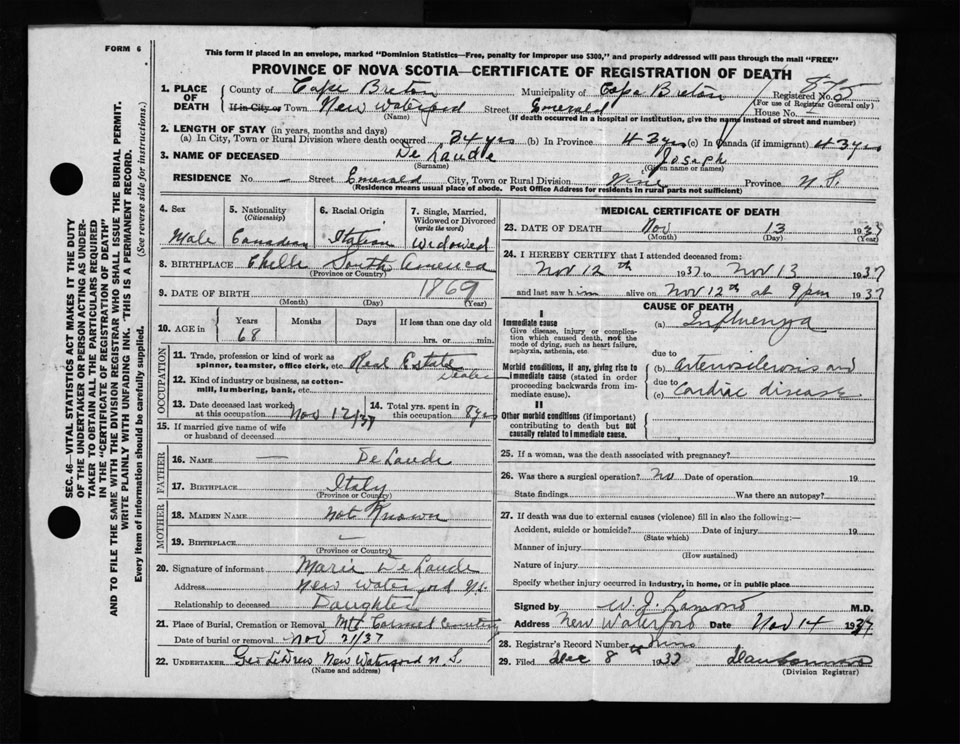 FORM 6
This form if placed in an envelope, marked "Dominion Statistics—Free, penalty for improper use $300," and properly addressed will pass through the mail "FREE"
PROVINCE OF NOVA SCOTIA—CERTIFICATE OF REGISTRATION OF DEATH
1. PLACE OF DEATH
County of Cape Breton Municipality of Cape Breton Registered No.
(For use of Registrar General only)
If in City or Town New Waterford Street Emerald House No.
(Name) (If death occurred in a hospital or institution, give the name instead of street and number)
2. LENGTH OF STAY (in years, months and days)
(a) In City, Town or Rural Division where death occurred 34 yrs (b) In Province 43 yrs (c) In Canada (if immigrant) 43 yrs
3. NAME OF DECEASED De Laude Joseph
(Surname) (Given name or names)
RESIDENCE No. — Street Emerald City, Town or Rural Division Province N.S.
(Residence means usual place of abode. Post Office Address for residents in rural parts not sufficient)
4. Sex
Male
5. Nationality
(Citizenship)
Canadian
6. Racial Origin
Italian
7. Single, Married, Widowed or Divorced
(write the word)
Widowed
8. BIRTHPLACE Chille South America
(Province or Country)
9. DATE OF BIRTH 1869
(Month) (Day) (Year)
10. AGE in
Years Months Days If less than one day old
68 hrs. or min.
OCCUPATION
11. Trade, profession or kind of work as spinner, teamster, office clerk, etc. Real Estate
12. Kind of industry or business, as cotton-mill, lumbering, bank, etc.
13. Date deceased last worked at this occupation Nov 12/37
14. Total yrs. spent in this occupation 8 yrs
15. If married give name of wife or husband of deceased
FATHER
16. NAME — De Laude
17. BIRTHPLACE Italy
(Province or Country)
MOTHER
18. MAIDEN NAME not Known
19. BIRTHPLACE —
(Province or Country)
20. Signature of informant Marie De Laude
Address New Waterford N.S.
Relationship to deceased Daughter
21. Place of Burial, Cremation or Removal Mt Carmel Cemetery
Date of burial or removal Nov 21/37
22. UNDERTAKER Geo LeDrew New Waterford N.S.
(Name and address)
MEDICAL CERTIFICATE OF DEATH
23. DATE OF DEATH Nov 13 1937
(Month) (Day) (Year)
24. I HEREBY CERTIFY that I attended deceased from:
Nov 12th 1937 to Nov 13 1937
and last saw him alive on Nov 12th at 9 pm 1937
CAUSE OF DEATH
I
Immediate cause
Give disease, injury or complication which caused death, not the mode of dying, such as heart failure, asphyxia, asthenia, etc.
(a) Influenza
due to
Morbid conditions, if any, giving rise to immediate cause (stated in order proceeding backwards from immediate cause).
(b) arteriosclerosis and
due to
(c) Cardiac disease
II
Other morbid conditions (if important) contributing to death but not causally related to immediate cause.
25. If a woman, was the death associated with pregnancy?
26. Was there a surgical operation? no Date of operation 19
State findings Was there an autopsy?
27. If death was due to external causes (violence) fill in also the following:—
Accident, suicide or homicide? Date of injury 19
(State which)
Manner of injury
(How sustained)
Nature of injury
Specify whether injury occurred in industry, in home, or in public place
Signed by W. J. Lamond M.D.
Address New Waterford Date Nov 14 1937
28. Registrar's Record Number
29. Filed Dec 8th 1937
(Division Registrar)
SEC. 46—VITAL STATISTICS ACT MAKES IT THE DUTY
OF THE UNDERTAKER OR PERSON ACTING AS UNDER-
TAKER TO OBTAIN ALL THE PARTICULARS REQUIRED
IN THE "CERTIFICATE OF REGISTRATION OF DEATH"
AND TO FILE THE SAME WITH THE DIVISION REGISTRAR WHO SHALL ISSUE THE BURIAL PERMIT.
WRITE PLAINLY WITH UNFADING INK. THIS IS A PERMANENT RECORD.
Every item of information should be carefully supplied. (See reverse side for instructions.)